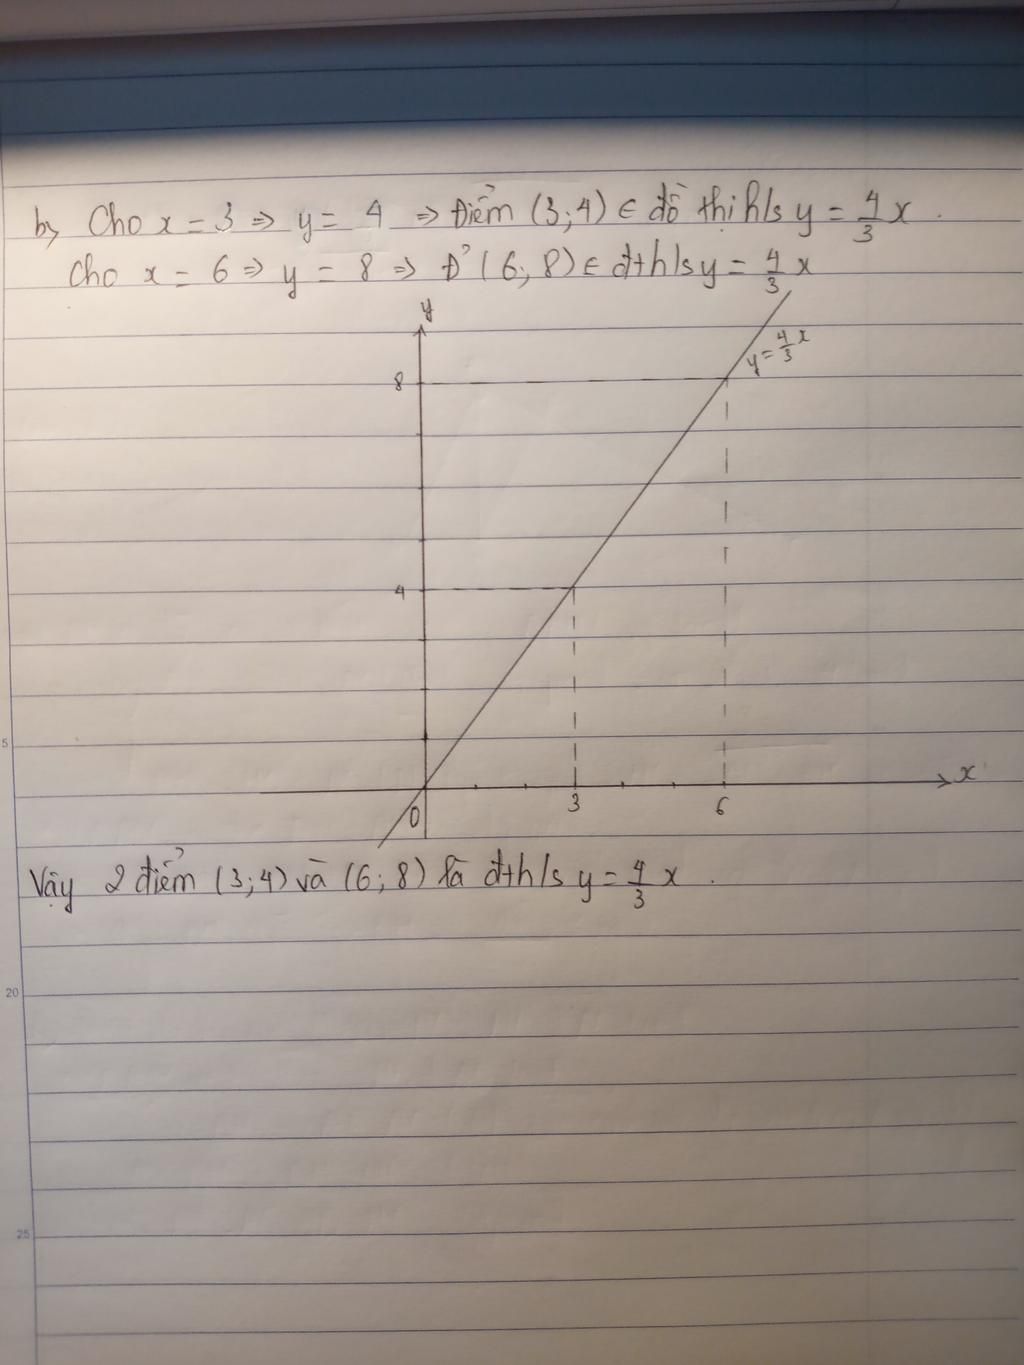 b, Cho x = 3 => y = 4 => Điểm (3;4) ∈ đồ thị h/s y = 4/3 x .
Cho x = 6 => y = 8 => Đ' (6; 8) ∈ đth/s y = 4/3 x
y
y = 4/3 x
8
4
5
x
0
3
6
Vậy 2 điểm (3;4) và (6; 8) là đth/s y = 4/3 x .
20
25